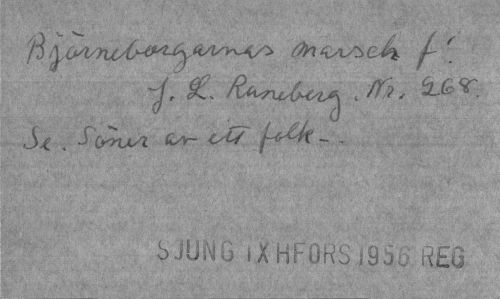 Björneborgarnas marsch f!
J. L. Runeberg. Nr. 268.
Se. Söner av ett folk -.
SJUNG IX HFORS 1956 REG